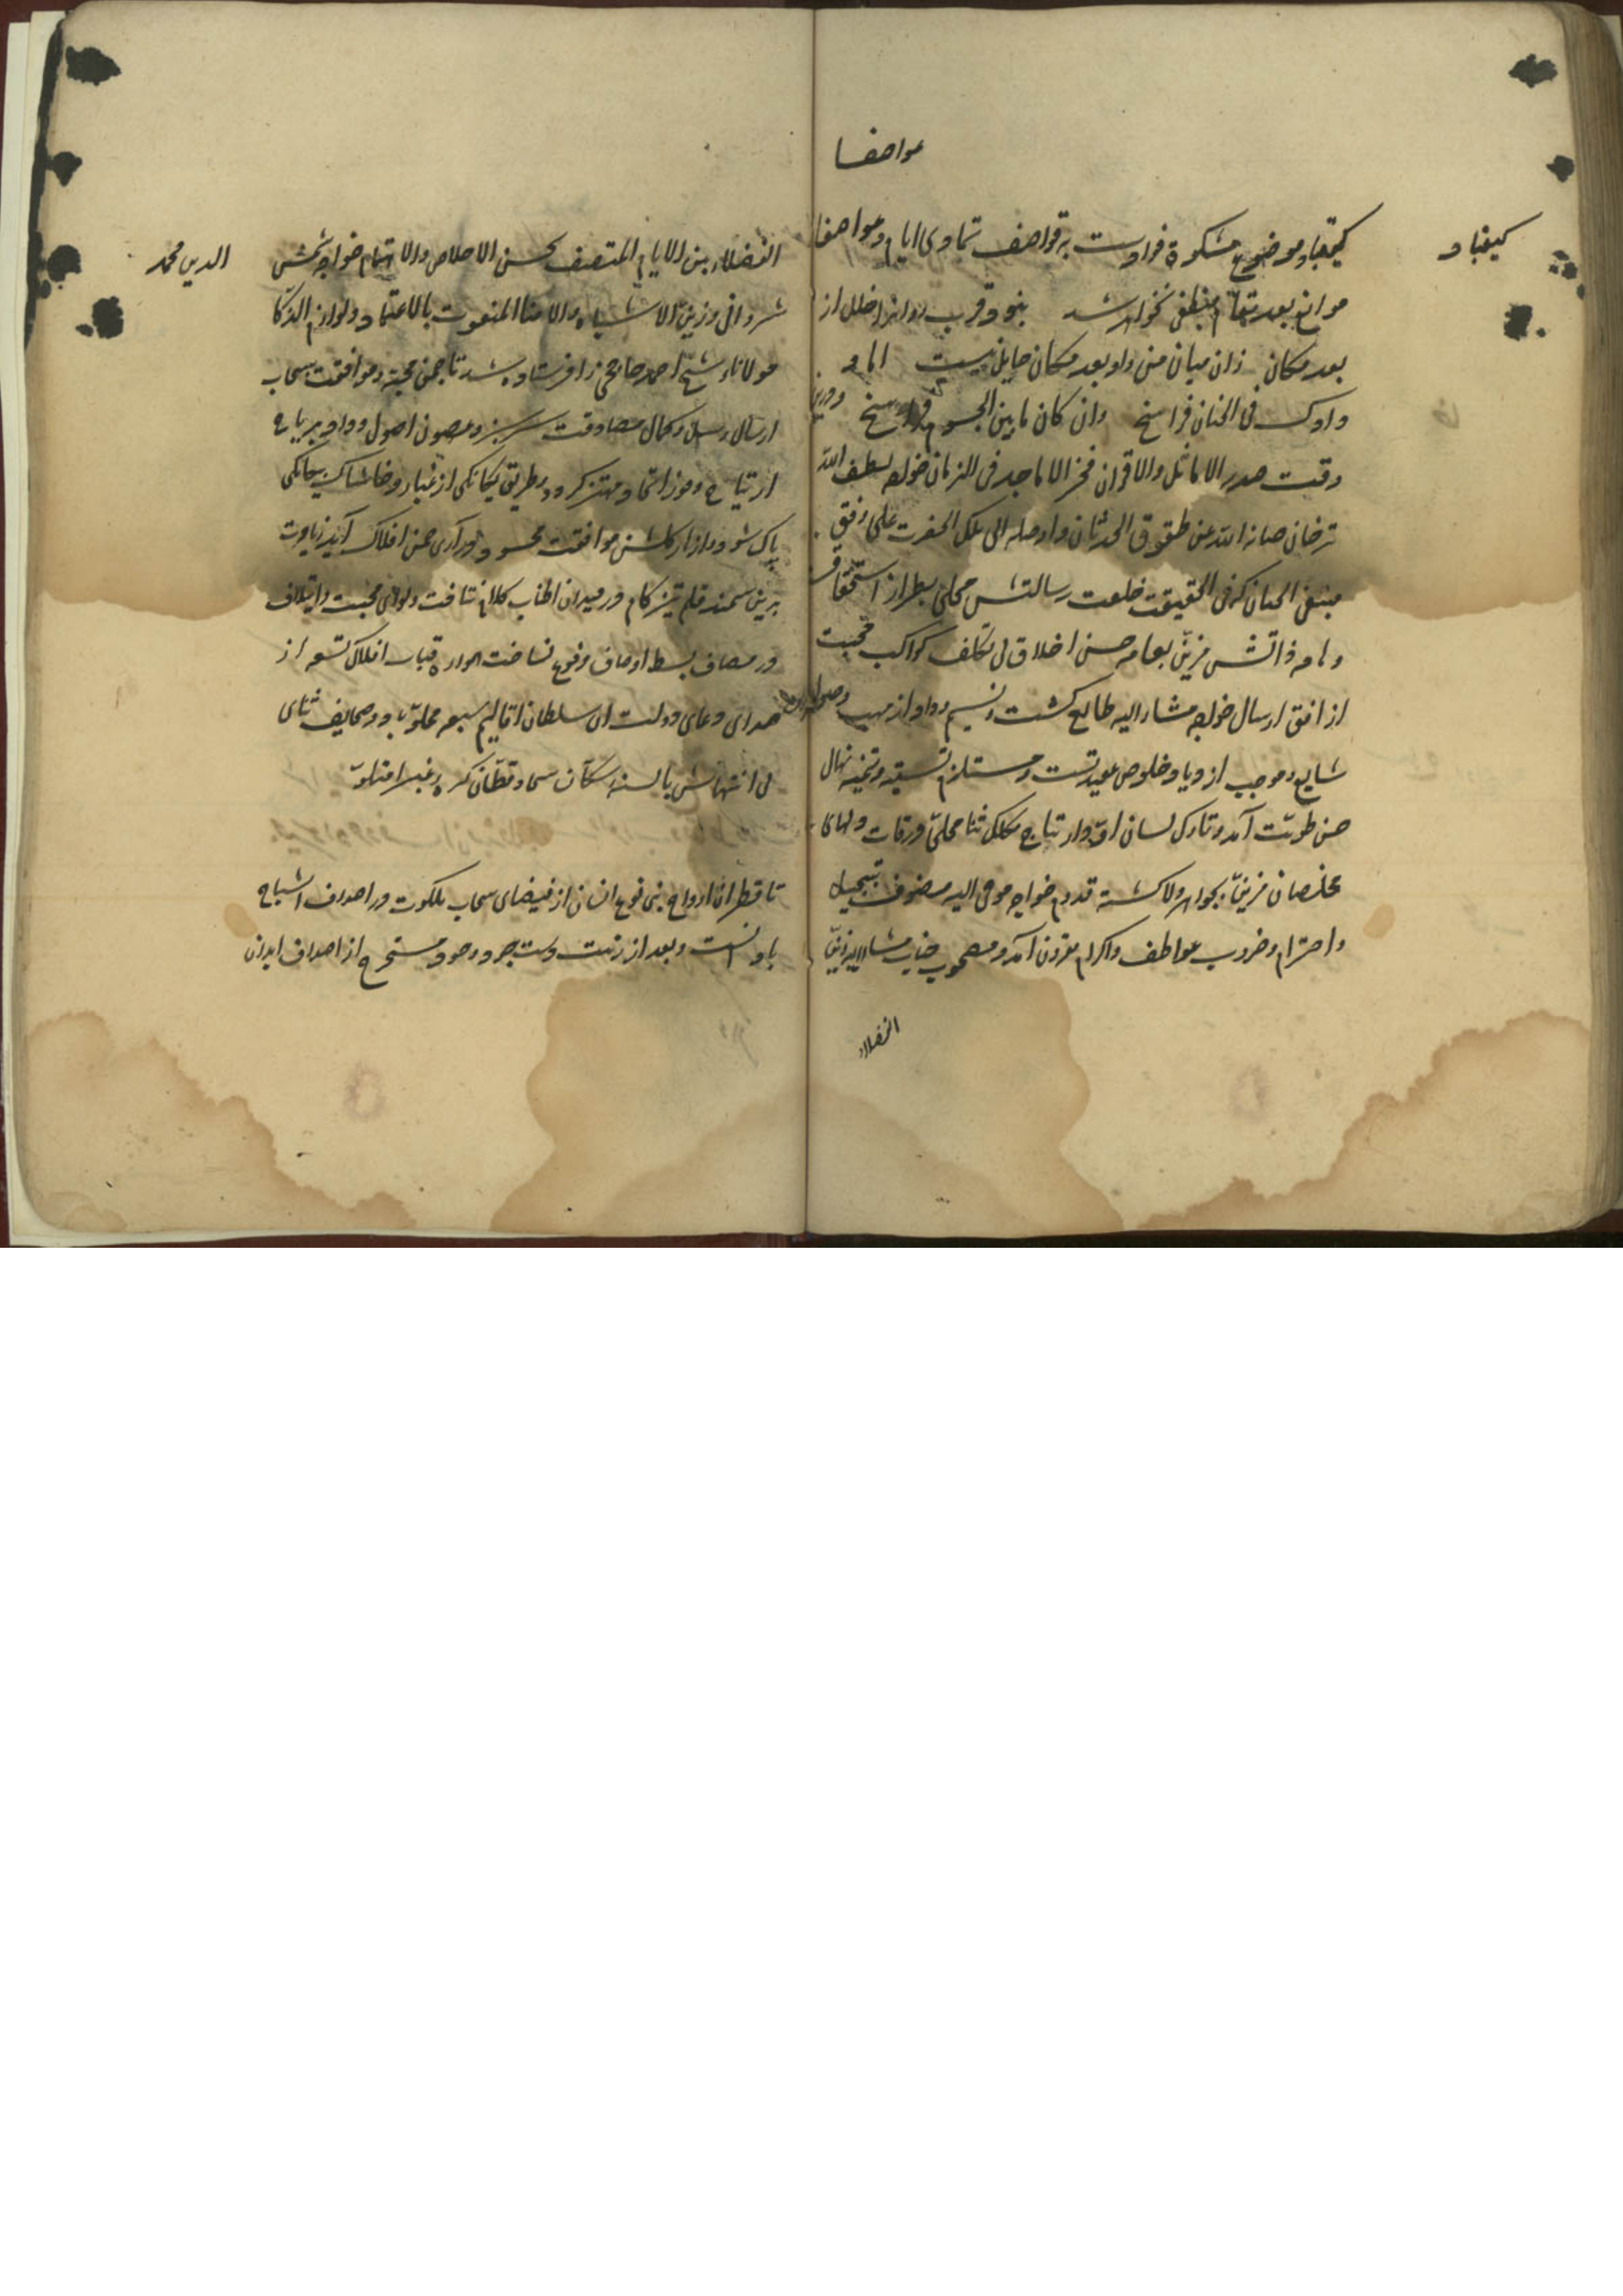 عواصفا
کیقباد
کیقباد موضوع مشکوة فوادست به قواصف تمادی ایام و عواصفا
موانع بعد مقام منطفی نخواهد شد بنود قرب روانرا خلل از
بعد مکان زان میان من و او بعد مکان حایل نیست اما و
وادک فی الجنان فراسخ وان کان مابین الجسوم فراسخ ودرین
وقت صدر الاماثل والاقران فخر الاماجد فی الزمان خواجه لطف الله
ترخان صانه الله عن طقوق الحدثان واوصله الی تلک الحضرت علی وفق
مبتغی الجنان که فی الحقیقت خلعت رسالتش محلی بطراز استحقاق
وجامه ذاتش مزین بعامه حسن اخلاق بی تکلف کواکب محبت
از افق ارسال خواجه مشار الیه طالع کشت و نسیم وداد از مهب
شایع و موجب ازدیاد خلوص عقیدتست و مستلزم تسقیه و تنمیه نهال
حسن طویت آمد و تارک لسان او ارتیاج مکلل ثنا محلی ورقات دلهای
مخلصان مزین بجواهر ولا کشته قدوم خواجه مومی الیه مصنوف تبجیل
واحترام و ضروب عواطف واکرام مقرون آمد و مصحوب جناب مشار الیه زین
الفضلاء
الفضلاء بین الایام المتصف بحسن الاخلاص والاهتمام خواجه شمس
الدین محمد
شروانی و زین الاشباه والامنا المنعوت بالاعتماد ولوازم الذکا
مولانا شیخ احمد حاجی را فرستاده شد تا چمن محبت و موافقت بسحاب
ارسال رسل و کمال مصادقت سرسبز و غصون اصول وداد بریاح
ارتیاح و فوز اتحاد مهتز کردد و طریق یکانکی از غبار و خاشاک بیکانکی
پاک شود و ازهار کلشن موافقت محسود دراری چمن افلاک آید زیادت
برین سمند قلم تیزکام در میدان اطناب کلام نتافت ولوای محبت وایتلاف
در مصاف بسط اوصاف مرفوع نساخت همواره قباب افلاک تسعه از
صدای دعای دولت ان سلطان اقالیم سبعه مملو باد و صحایف ثنای
بی انتهاش بالسنه سکان سما و قطان کره غبرا متلو
تا قطرات ارواح بنی نوع انسان از فیضان سحاب ملکوت در اصداف اشباح
باد انست و بعد از زینت دست جرد وجود مستخرج از اصداف ابدان